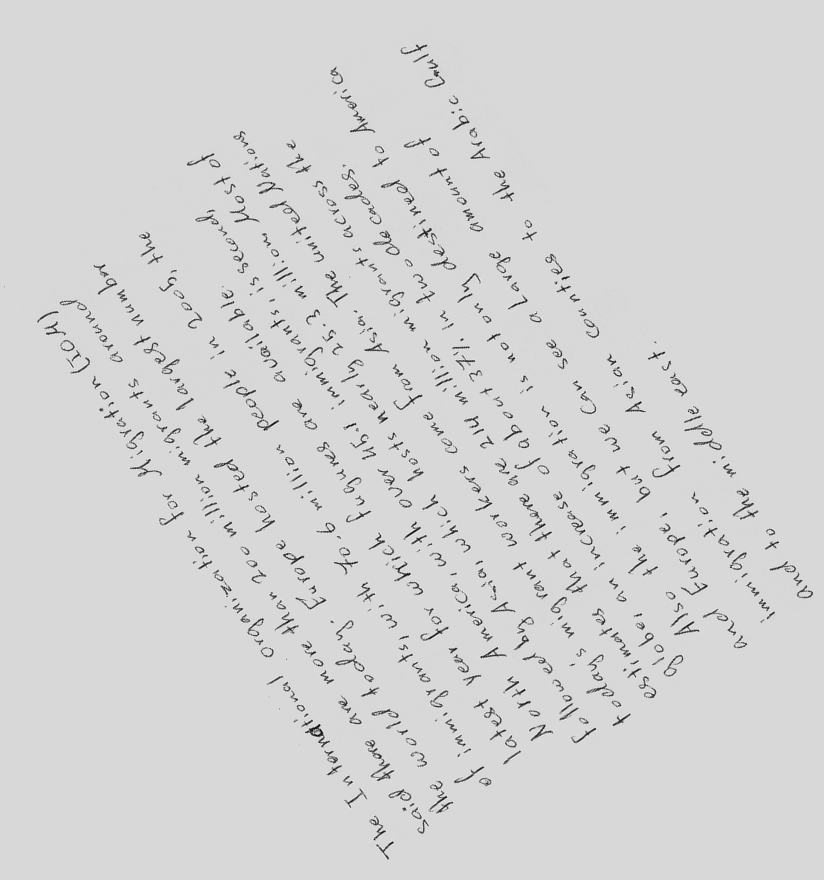 The International Organization for Migration (IOM)
said there are more than 200 million migrants around
the world today. Europe hosted the largest number
of immigrants, with 70.6 million people in 2005, the
latest year for which fugures are available.
North America, with over 45.1 immigrants, is second,
followed by Asia, which hosts nearly 25.3 million. Most of
today's migrant workers come from Asia. The united Nations
estimates that there are 214 million migrants across the
globe, an increase of about 37% in two decades.
Also the immigration is not only destined to America
and Europe, but we can see a large amount of
immigration from Asian counties to the Arabic Gulf
and to the middle east.